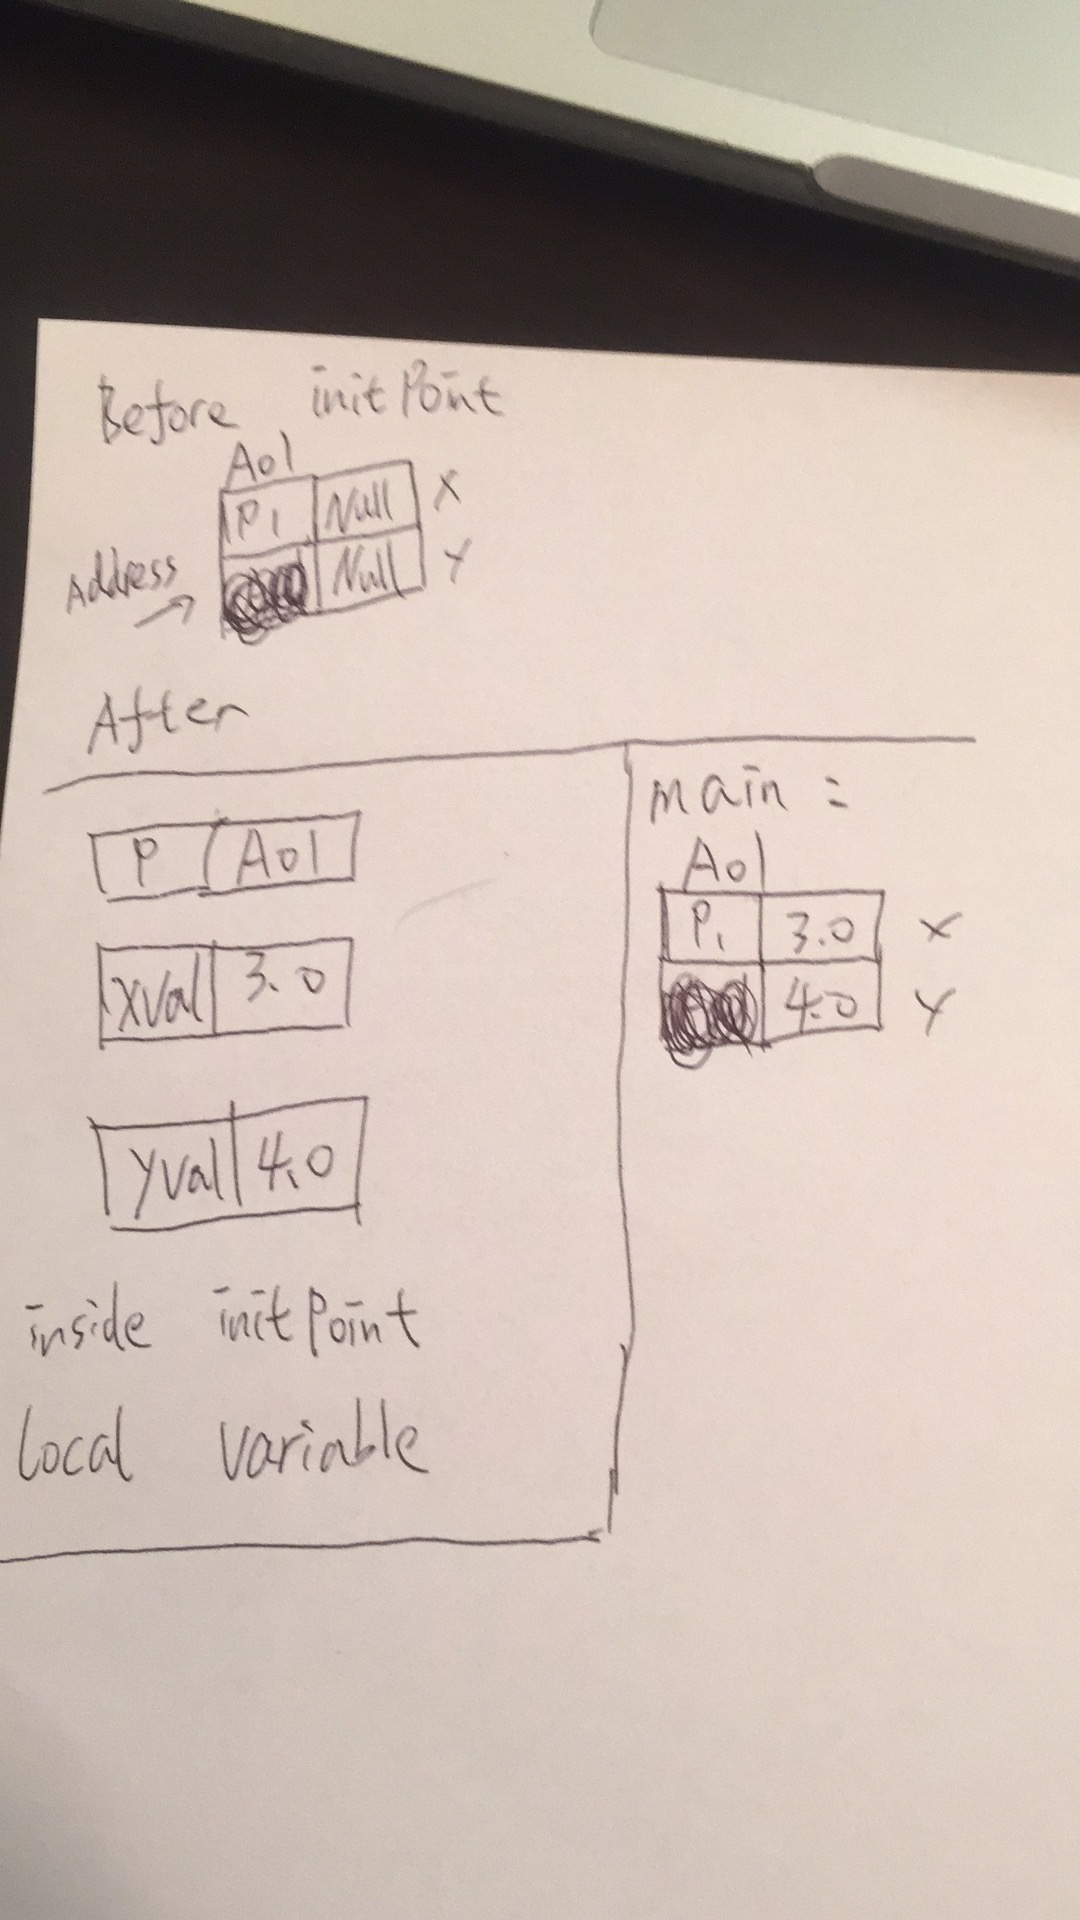 Before initPoint
A01
P1 Null X
Address Null Y
After
P A01
xVal 3.0
yval 4.0
inside initPoint
local variable
main :
A01
P1 3.0 X
4.0 Y